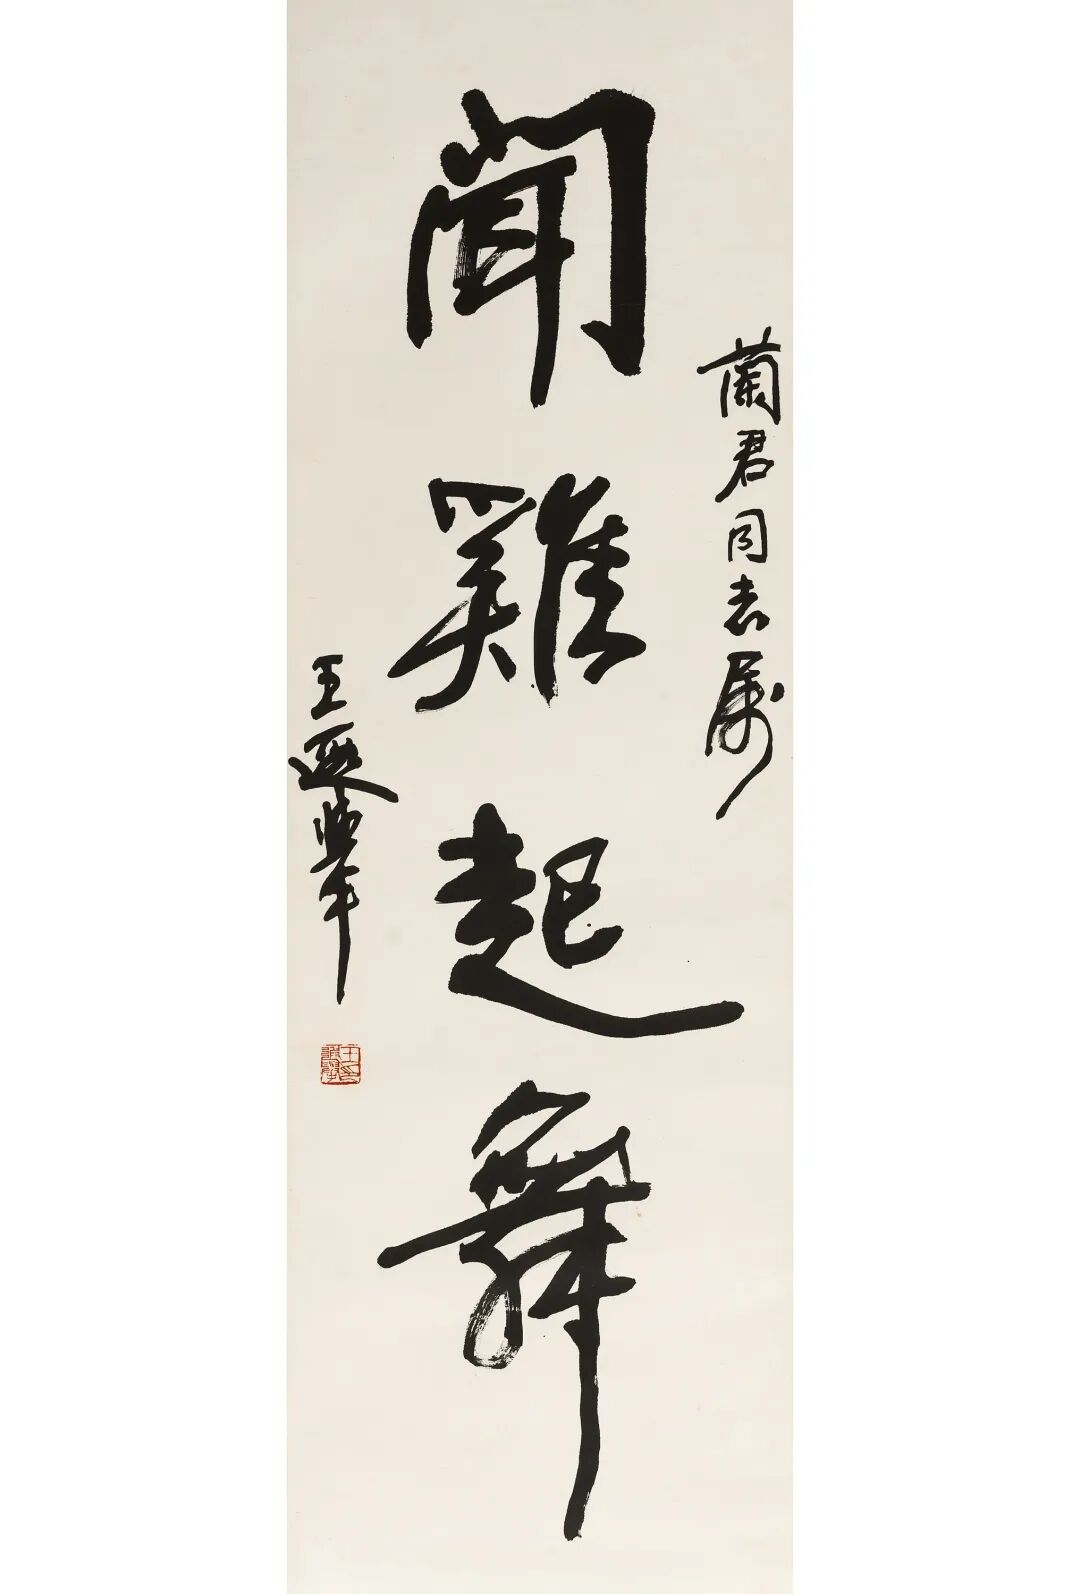 蘭君同志屬
聞雞起舞
王遐舉